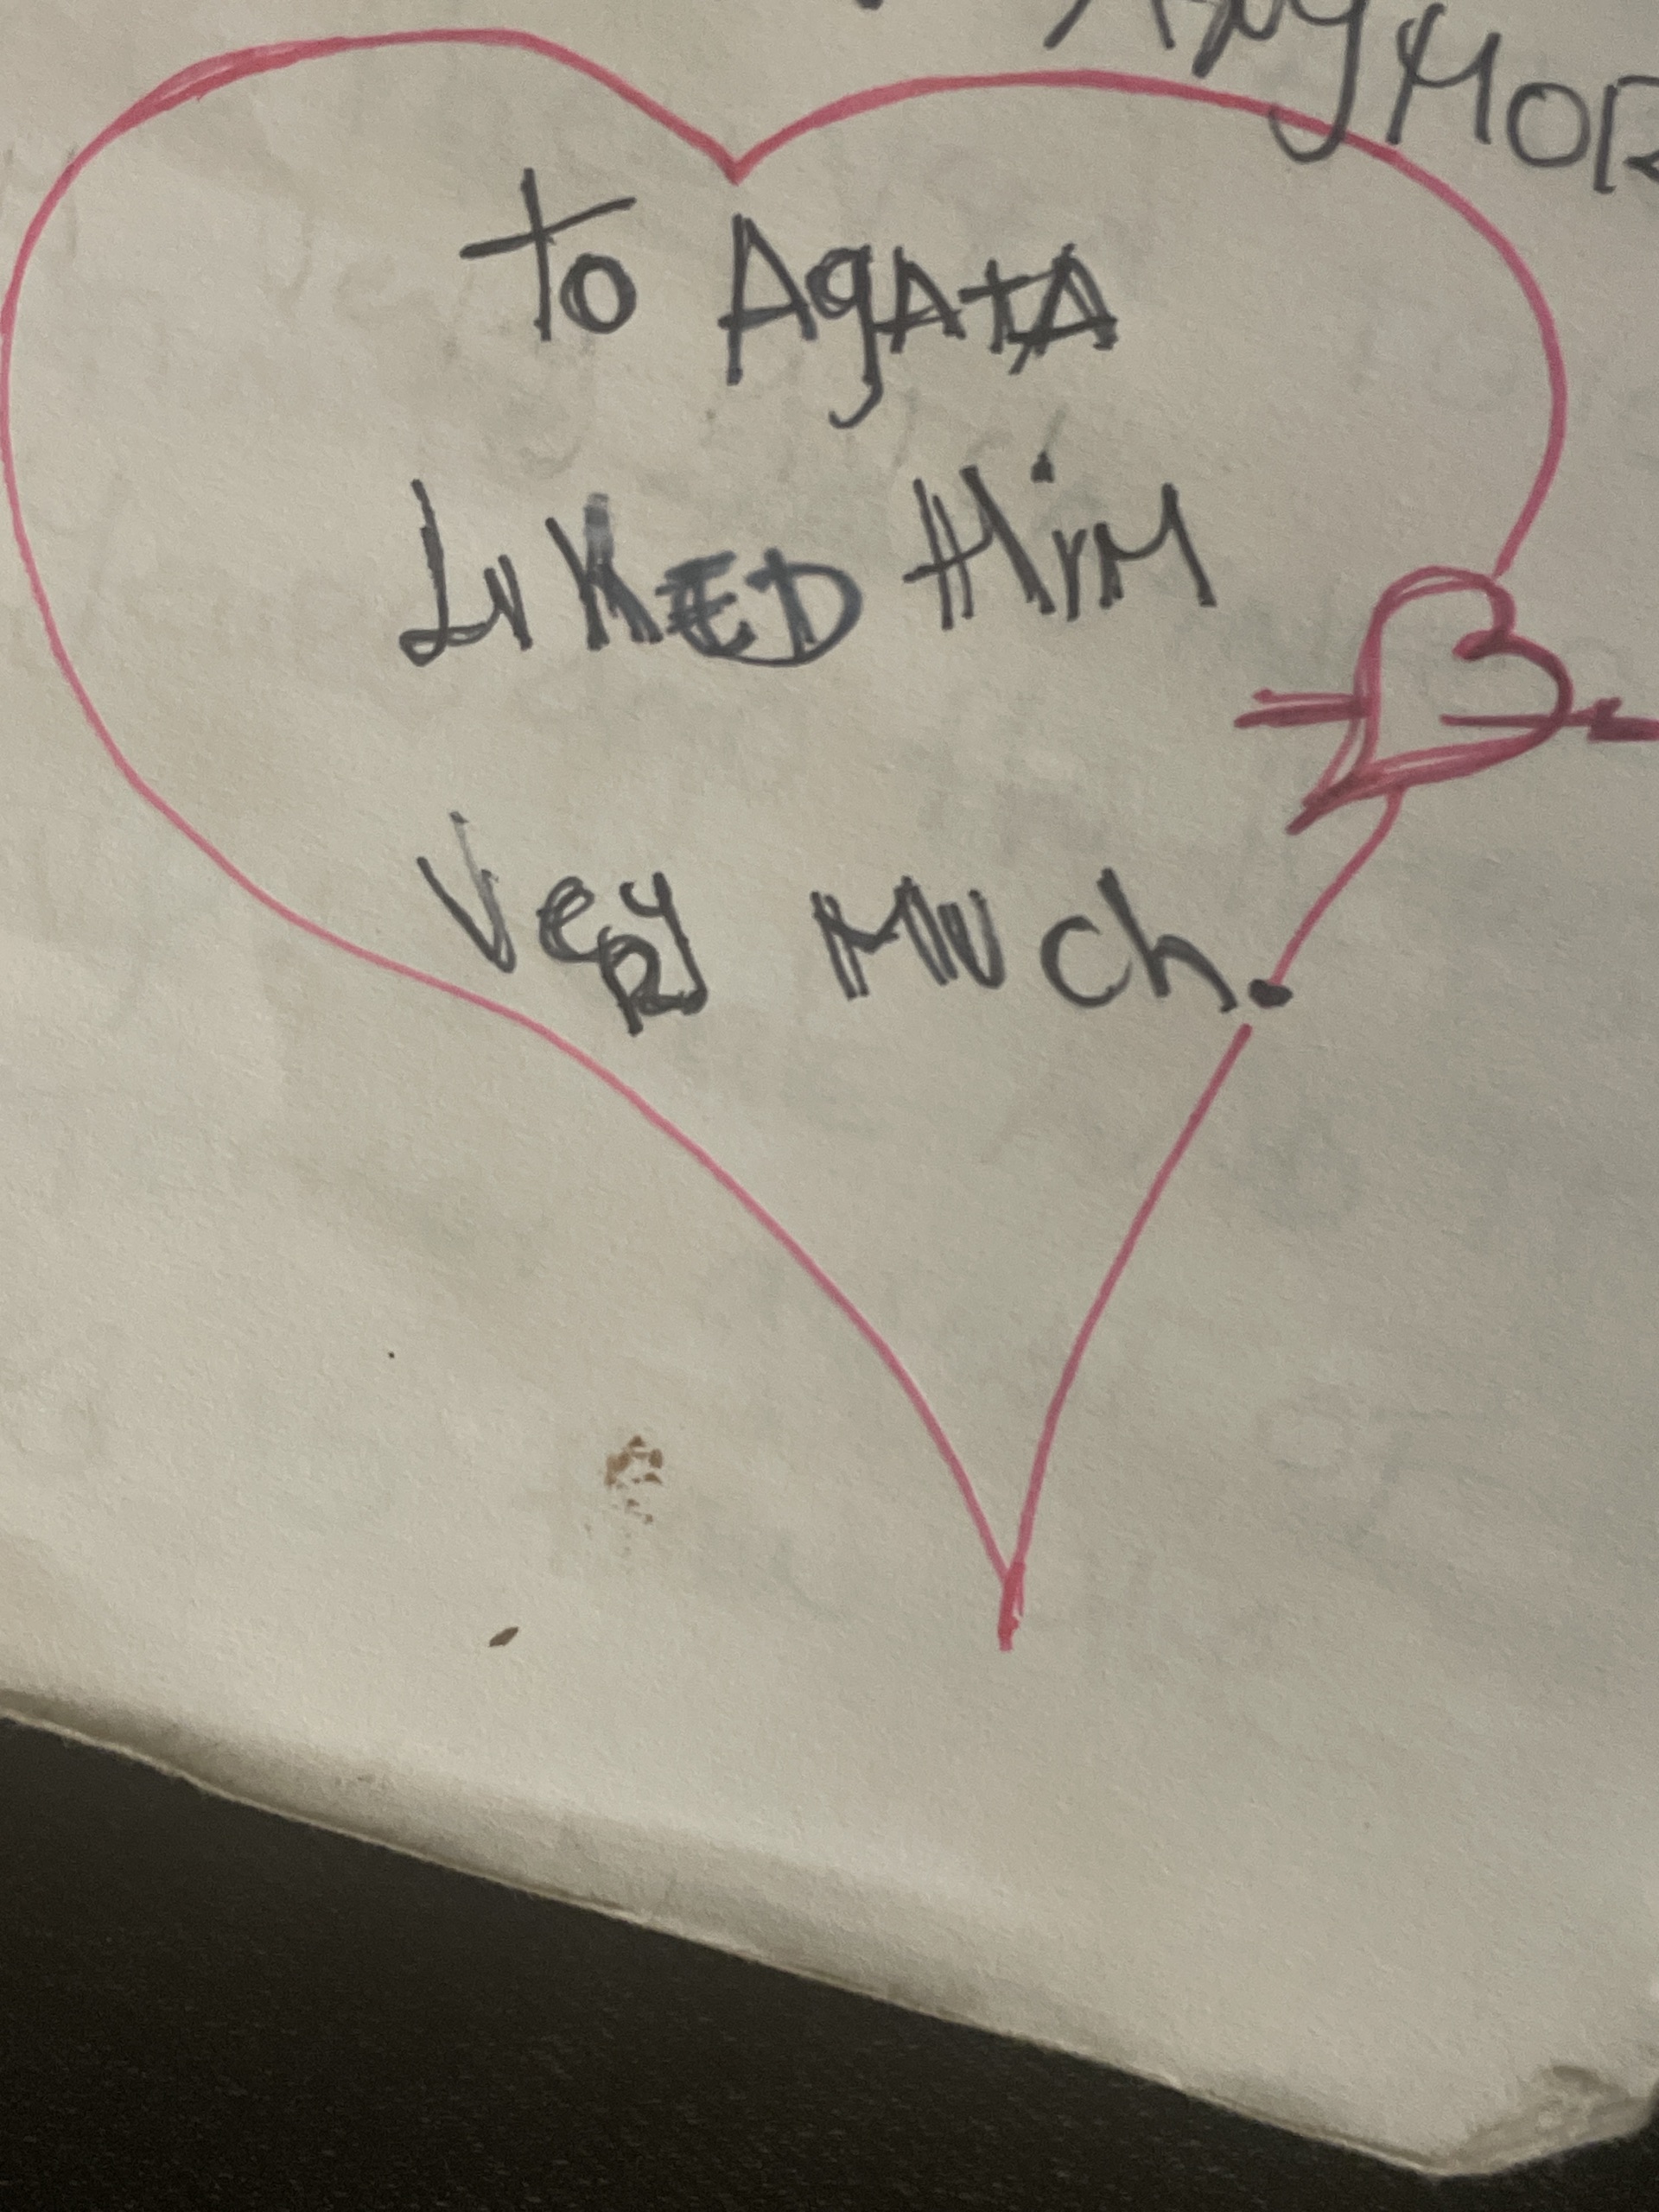 AnyMOR
To AgAtA
LiKED HiM
VeRy MUCh.